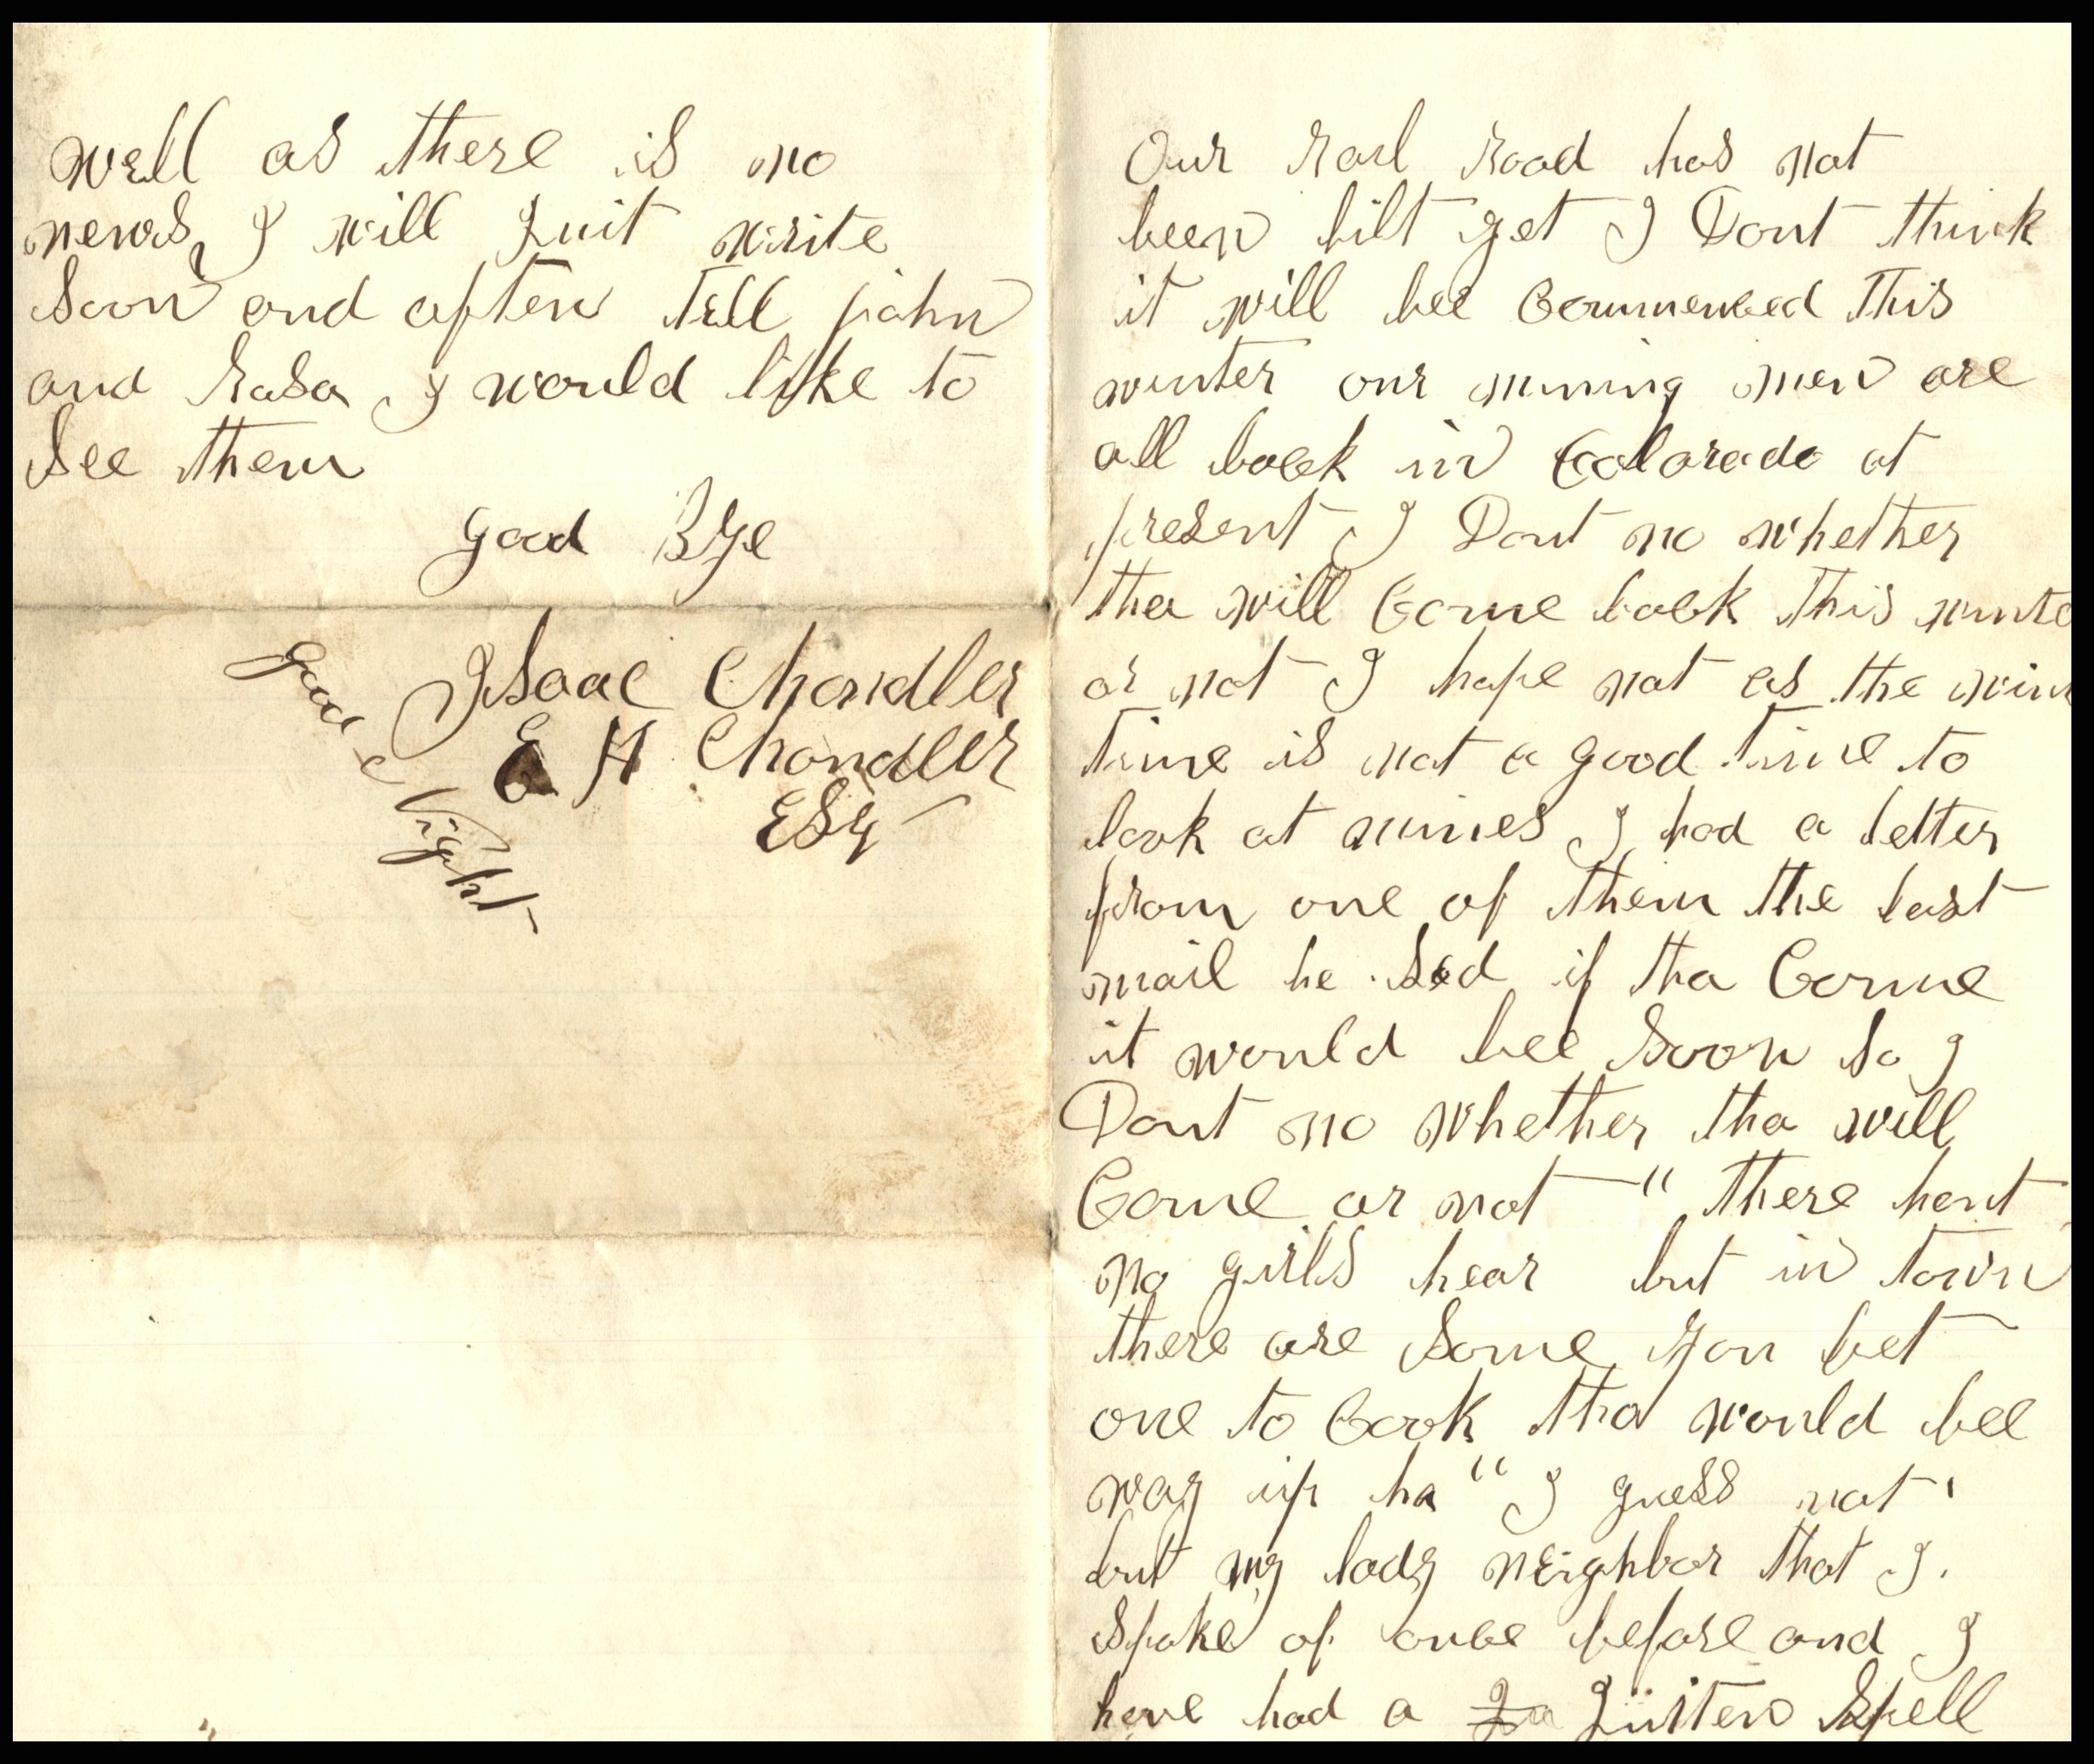 well as there is no
news I will Quit write
Soon and often tell john
and Rasa I would like to
See them
good Bye
Isaac Chandler
E H Chandler
Esq
good Night
Our Rail Road has not
been bilt yet I Dont think
it will bee Commenced this
winter our mining men are
all back in Colorado at
present I Dont no whether
tha will Come back this winte
or not I hope not as the win
time is not a good time to
look at mines I had a letter
from one of them the last
mail he Sed if tha Come
it would bee Soon So I
Dont no whether tha will
Come or not " there hent
no girls hear but in town
there are Some you bet
one to Cook tha would bee
way up ha " I guess not
but my lady neighbor that I
Spoke of once before and I
have had a Quiten Spell